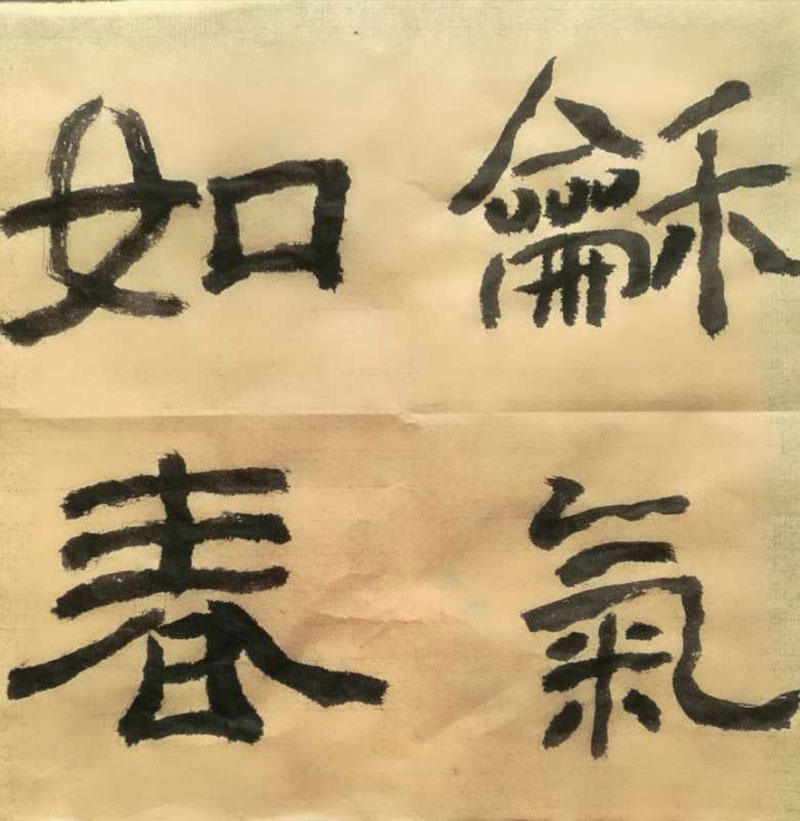 龢氣
如春